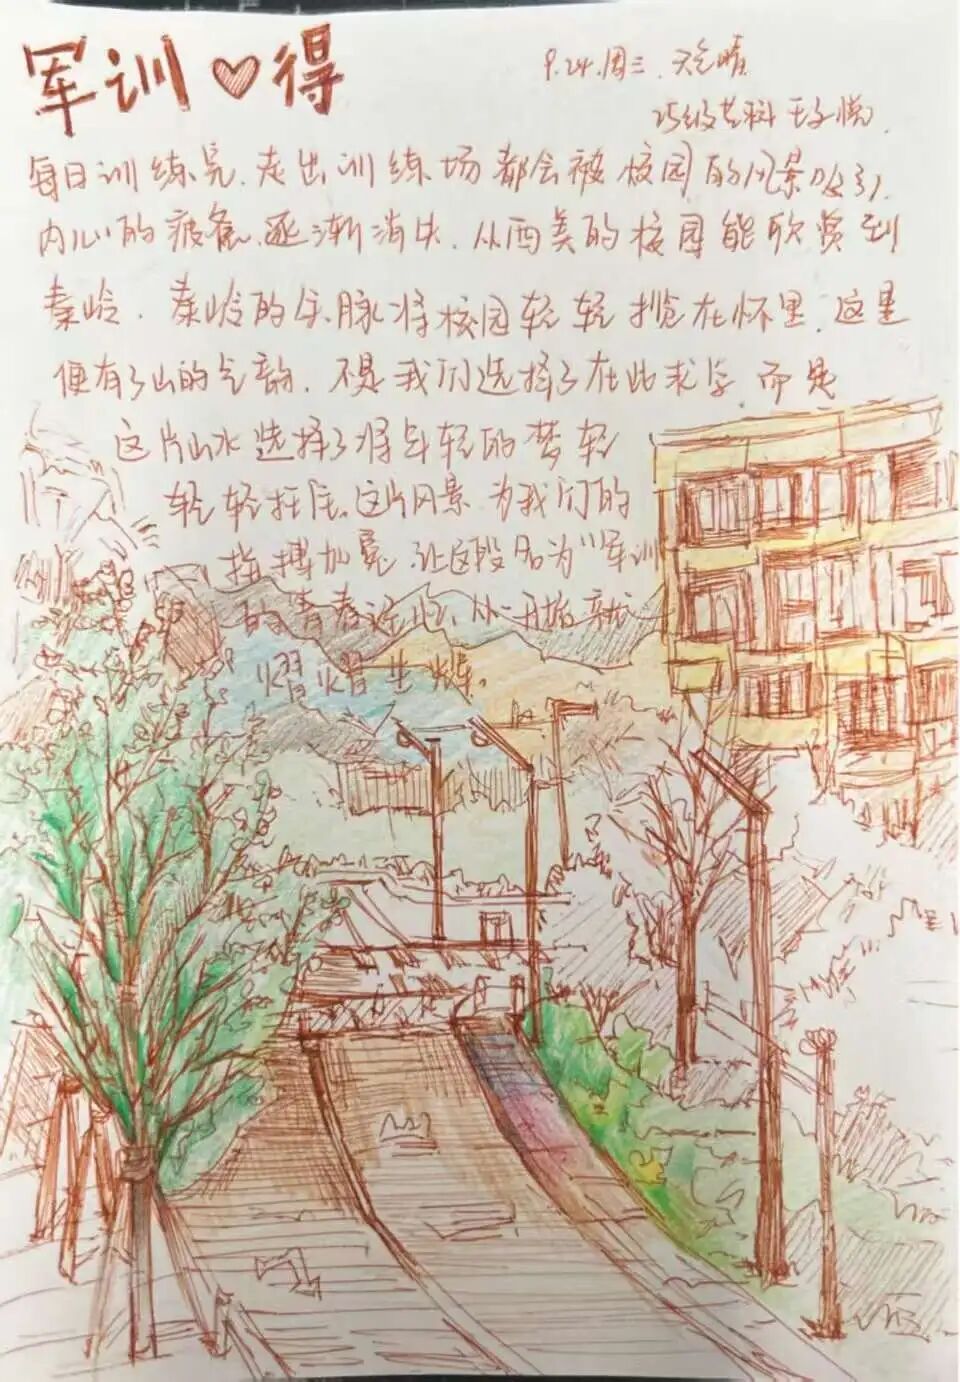 军训♡得
9.24.周三.天气晴
25级艺科 王子悦.
每日训练完.走出训练场都会被校园的风景吸引,
内心的疲惫.逐渐消失.从西美的校园能欣赏到
秦岭.秦岭的余脉将校园轻轻揽在怀里.这里
便有了山的气韵.不是我们选择了在此求学.而是
这片山水选择了将年轻的梦轻
轻轻托住.这片风景.为我们的
拼搏加冕.让这段名为"军训
的青春记忆.从一开始就
熠熠生辉。